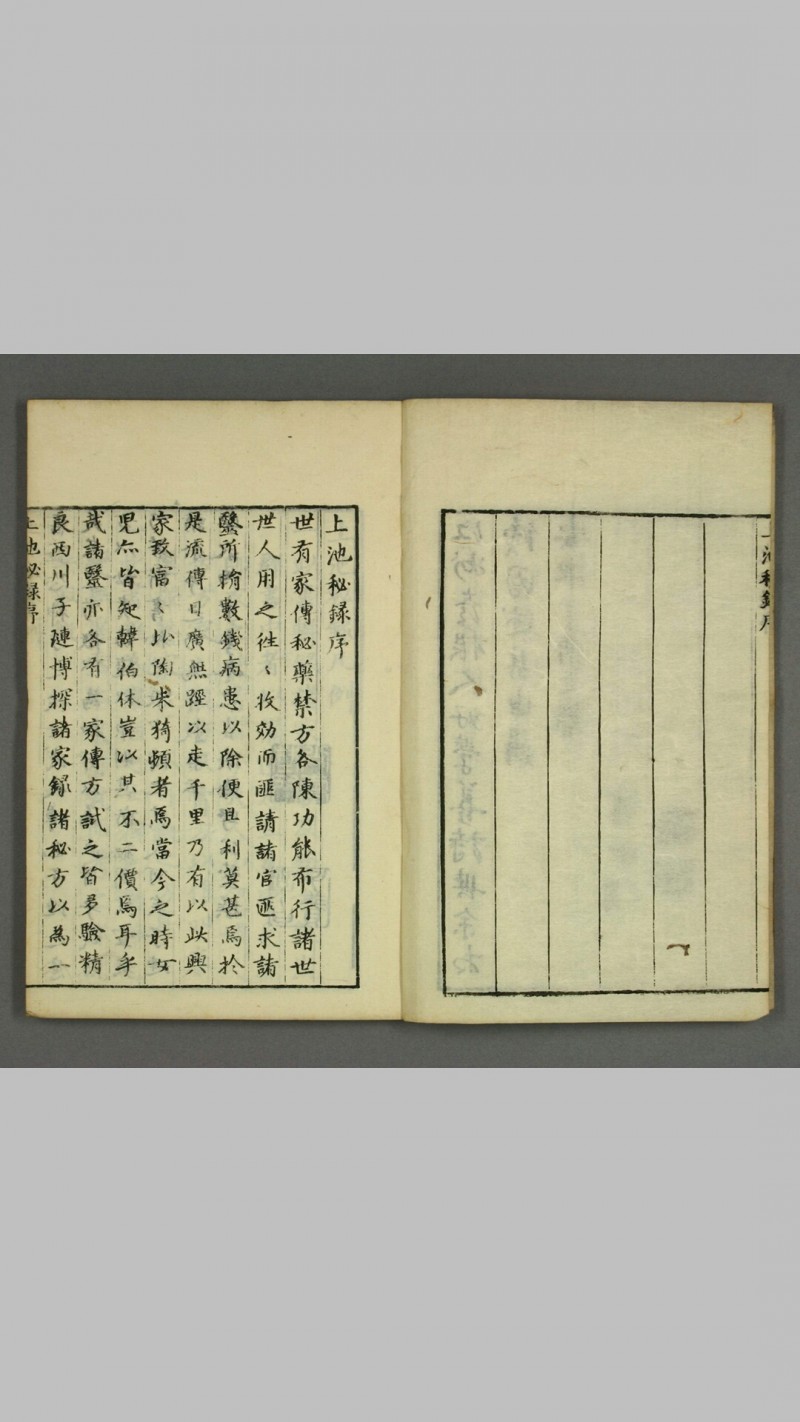 上池秘録序
上池秘録序
世有家傳秘藥禁方各陳功能布行諸世
世人用之徃〻收効而匪請諸官匪求諸
毉所撨數錢病患以除便且利莫甚焉於
是流傳日廣無蹊以走千里乃有以此興
家致富〻比陶朱猗頓者焉當今之時女
児亦皆知韓伯休豈以其不二價焉耳乎
哉諸毉亦各有一家傳方試之皆多驗精
良西川子璉博探諸家録諸秘方以為一
上池秘録序